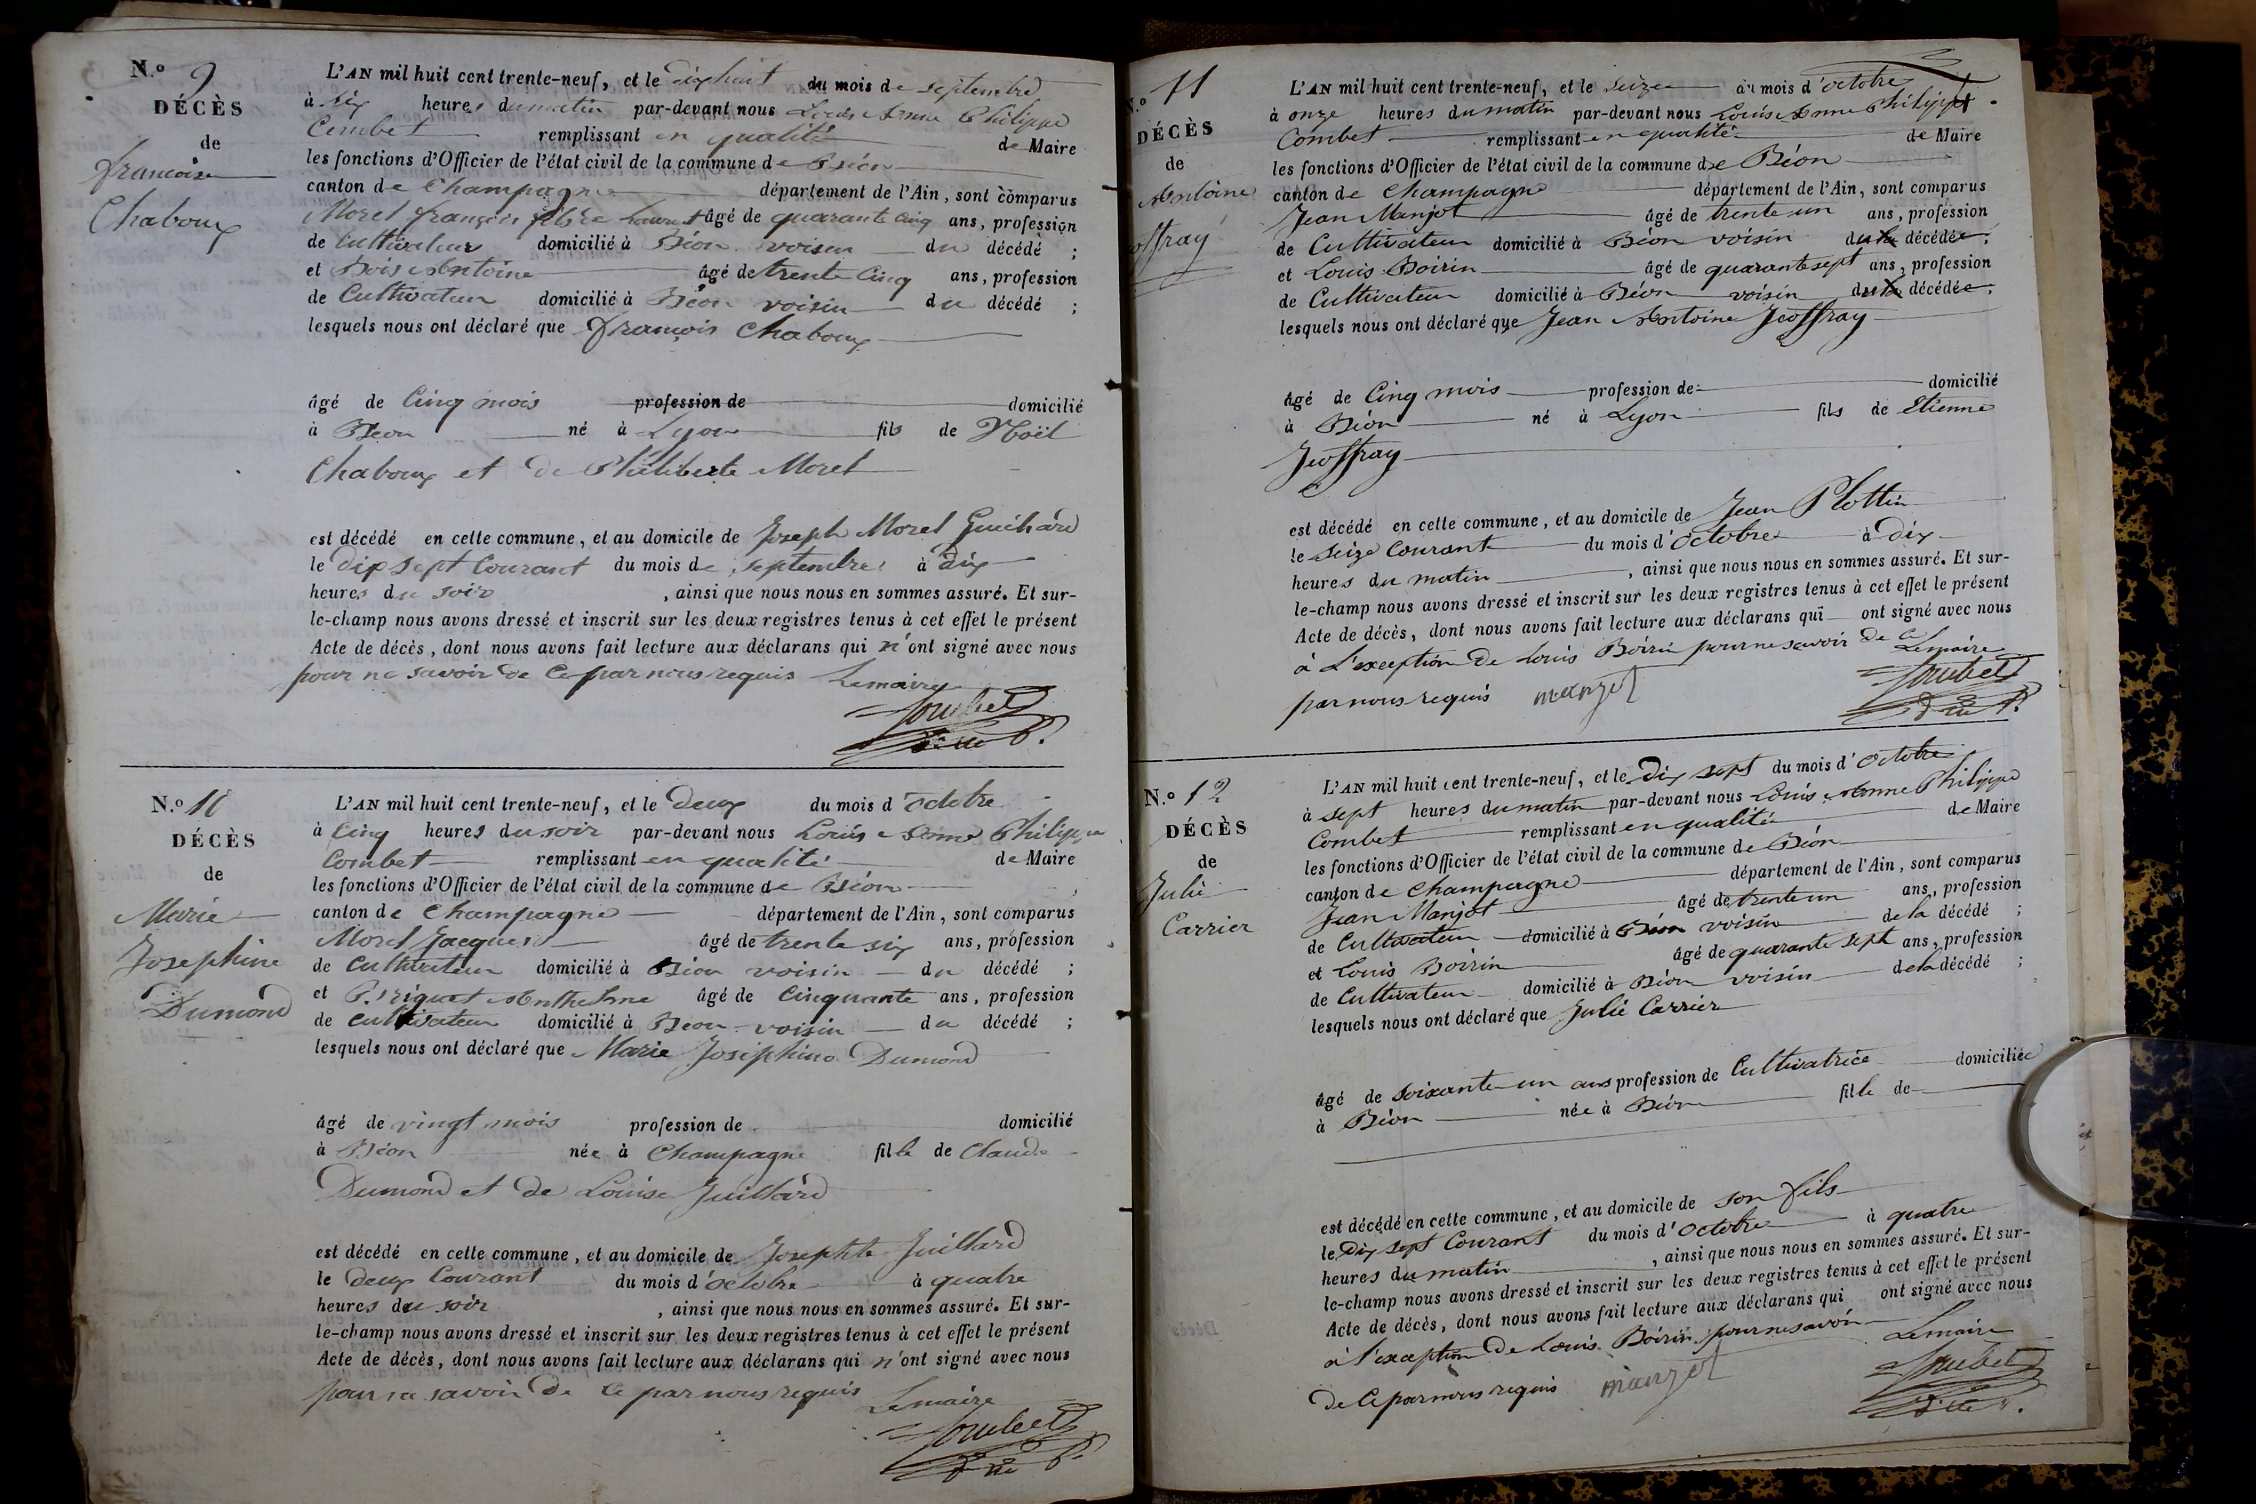 N.º 9
DÉCÈS
de
françoise
Chaboux
L'AN mil huit cent trente-neuf, et le dixhuit du mois de septembre
à six heures du matin par-devant nous Louis Anne Philippe
Combet remplissant en qualité de Maire
les fonctions d'Officier de l'état civil de la commune de Béon
canton de Champagne département de l'Ain, sont comparus
Morel françois âgé de quarante cinq ans, profession
de Cultivateur domicilié à Béon voisin du décédé ;
et Bois Antoine âgé de trente Cinq ans, profession
de Cultivateur domicilié à Béon voisin du décédé ;
lesquels nous ont déclaré que françois Chaboux
âgé de Cinq mois profession de domicilié
à Béon né à Lyon fils de Noël
Chaboux et de Philiberte Morel
est décédé en cette commune, et au domicile de Joseph Morel Guichard
le dix sept Courant du mois de septembre à dix
heures du soir , ainsi que nous nous en sommes assuré. Et sur-
le-champ nous avons dressé et inscrit sur les deux registres tenus à cet effet le présent
Acte de décès, dont nous avons fait lecture aux déclarans qui n'ont signé avec nous
pour ne savoir de Ce par nous requis Lemaire
Combet
N.º 10
DÉCÈS
de
Marie
Josephine
Dumond
L'AN mil huit cent trente-neuf, et le deux du mois d'octobre
à Cinq heures du soir par-devant nous Louis Anne Philippe
Combet remplissant en qualité de Maire
les fonctions d'Officier de l'état civil de la commune de Béon
canton de Champagne département de l'Ain, sont comparus
Morel Jacques âgé de trente six ans, profession
de Cultivateur domicilié à Béon voisin du décédé ;
et Anthelme âgé de Cinquante ans, profession
de Cultivateur domicilié à Béon voisin du décédé ;
lesquels nous ont déclaré que Marie Joséphine Dumond
âgé de vingt mois profession de domicilié
à Béon née à Champagne fille de Claude
Dumond et de Louise Juillard
est décédé en cette commune, et au domicile de Josephte Juillard
le deux Courant du mois d'octobre à quatre
heures du soir , ainsi que nous nous en sommes assuré. Et sur-
le-champ nous avons dressé et inscrit sur les deux registres tenus à cet effet le présent
Acte de décès, dont nous avons fait lecture aux déclarans qui n'ont signé avec nous
pour ne savoir de Ce par nous requis Lemaire
Combet
N.º 11
DÉCÈS
de
Antoine
L'AN mil huit cent trente-neuf, et le seize du mois d'octobre
à onze heures du matin par-devant nous Louis Anne Philippe
Combet remplissant en qualité de Maire
les fonctions d'Officier de l'état civil de la commune de Béon
canton de Champagne département de l'Ain, sont comparus
Jean Manjot âgé de trente un ans, profession
de Cultivateur domicilié à Béon voisin du décédée ;
et Louis Boirin âgé de quarante sept ans, profession
de Cultivateur domicilié à Béon voisin du décédée ;
lesquels nous ont déclaré que Jean Antoine Jeoffray
âgé de Cinq mois profession de domicilié
à Béon né à Lyon fils de Etienne
Jeoffray
est décédé en cette commune, et au domicile de Jean Plottin
le Seize Courant du mois d'Octobre à Dix
heures du matin , ainsi que nous nous en sommes assuré. Et sur-
le-champ nous avons dressé et inscrit sur les deux registres tenus à cet effet le présent
Acte de décès, dont nous avons fait lecture aux déclarans qui ont signé avec nous
à L'exception de Louis Boirin pour ne savoir de Ce Lemaire
par nous requis manjot Combet
N.º 12
DÉCÈS
de
Julie
Carrier
L'AN mil huit cent trente-neuf, et le Dix sept du mois d'Octobre
à sept heures du matin par-devant nous Louis Anne Philippe
Combet remplissant en qualité de Maire
les fonctions d'Officier de l'état civil de la commune de Béon
canton de Champagne département de l'Ain, sont comparus
Jean Manjot âgé de trente un ans, profession
de Cultivateur domicilié à Béon voisin de la décédé ;
et Louis Boirin âgé de quarante sept ans, profession
de Cultivateur domicilié à Béon voisin de la décédé ;
lesquels nous ont déclaré que Julie Carrier
âgé de Soixante un ans profession de Cultivatrice domiciliée
à Béon née à Béon fille de
est décédé en cette commune, et au domicile de son fils
le Dix sept Courant du mois d'Octobre à quatre
heures du matin , ainsi que nous nous en sommes assuré. Et sur-
le-champ nous avons dressé et inscrit sur les deux registres tenus à cet effet le présent
Acte de décès, dont nous avons fait lecture aux déclarans qui ont signé avec nous
à l'exception de Louis Boirin pour ne savoir Lemaire
de Ce par nous requis manjot Combet